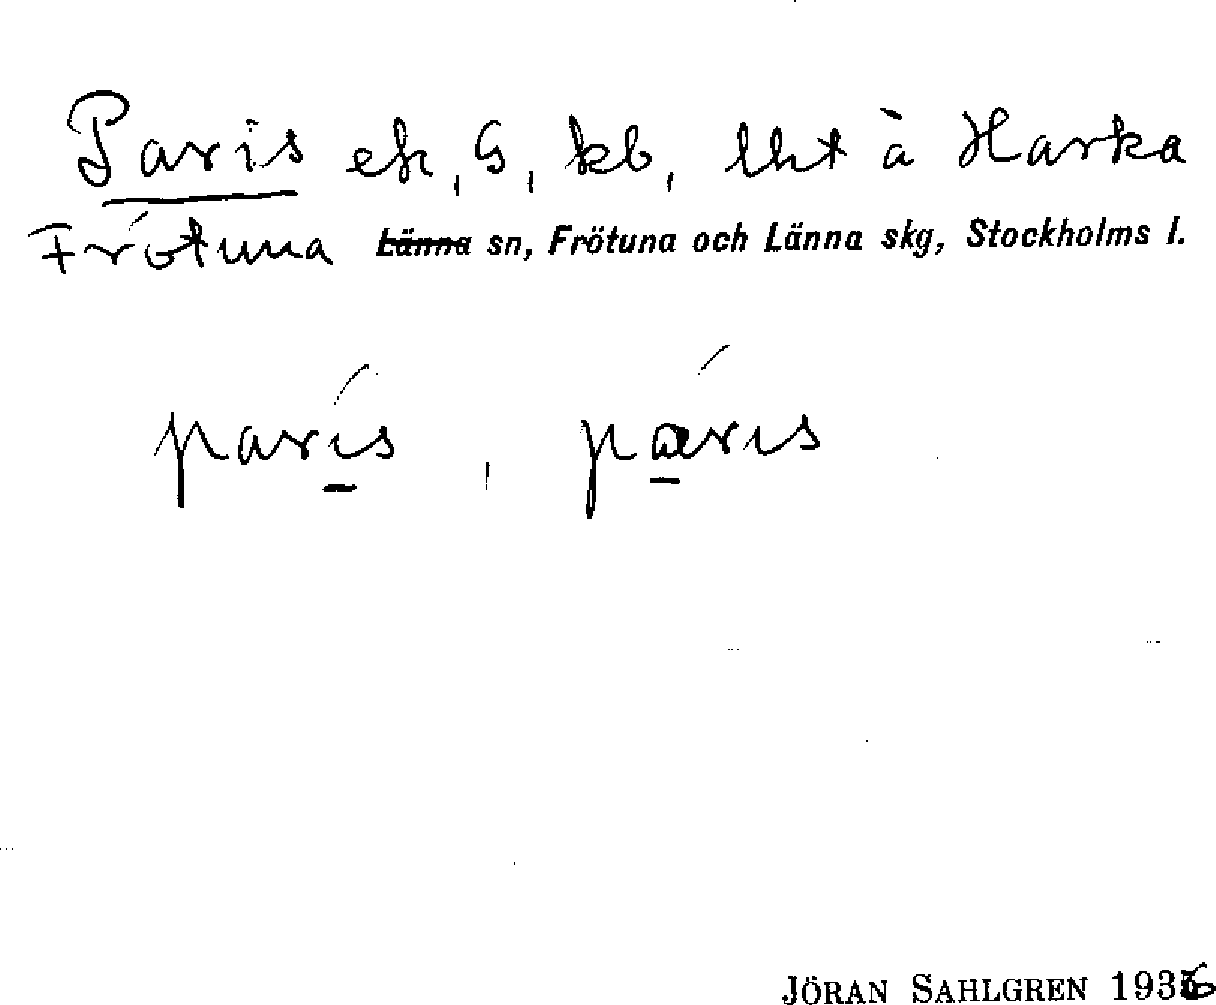 Paris ek, G, kb, lht à Harka
Frötuna Länna sn, Frötuna och Länna skg, Stockholms l.
parís, páris
JÖRAN SAHLGREN 1936